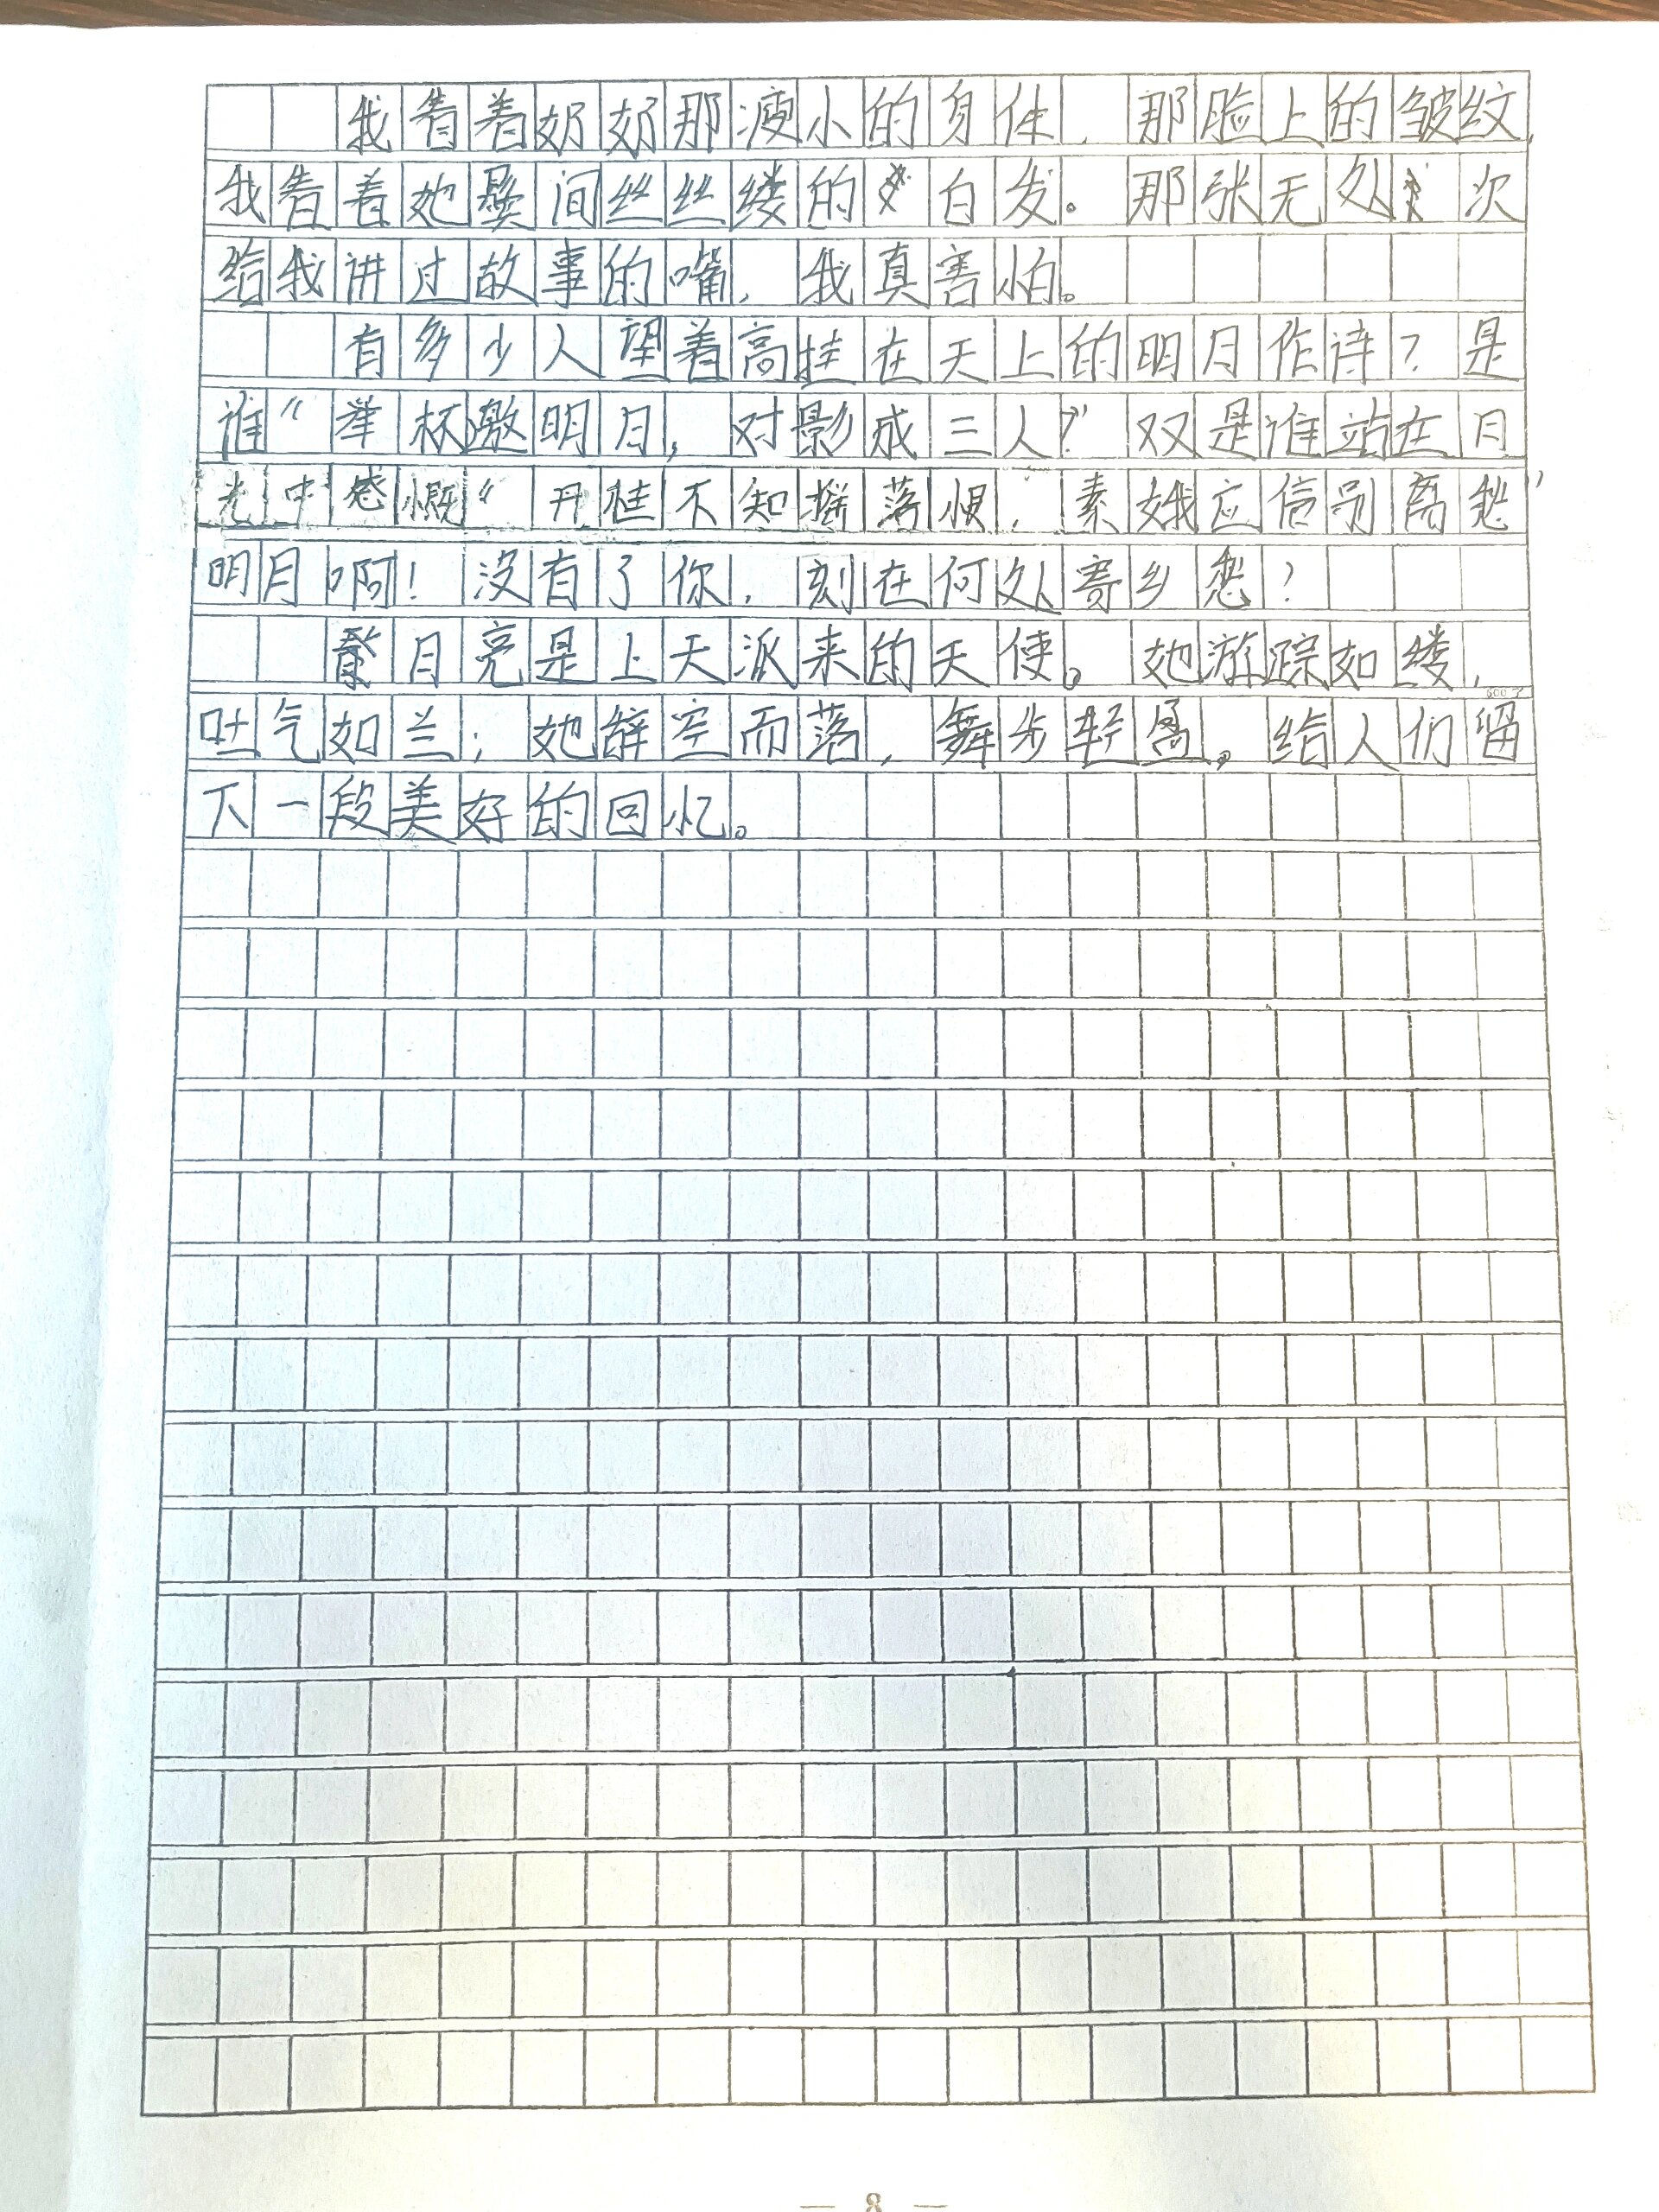 我看着奶奶那瘦小的身体，那脸上的皱纹，
我看着她鬓间丝丝缕的白发。那张无处次
给我讲过故事的嘴，我真害怕。
有多少人望着高挂在天上的明月作诗？是
谁“举杯邀明月，对影成三人？”双是谁站在月
光中感慨“丹桂不知摇落恨，素娥应信别离愁”
明月啊！没有了你，刻在何处寄乡愁？
月亮是上天派来的天使。她游踪如缕，
600字
吐气如兰；她辞空而落，舞步轻盈。给人们留
下一段美好的回忆。
— 8 —